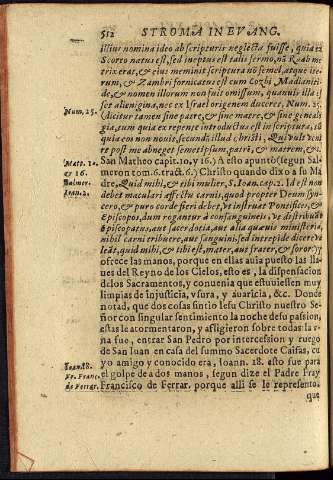 512 STROMA IN EVANG.
illius nomina ideo ab scripturis neglecta fuisse, quia ex
Scorto natus est, sed ineptus est talis sermo, nā Raab me
trix erat, & eius meminit scriptura nō semel, atque ite
rum, & Zambri fornicatus est cum Cozbi Madianiti
de, & nomen illorum non fuit omissum, quanuis illa es
set alienigina, nec ex Israel originem duceret, Num. 25.
Dicitur tamen sine patre, & sine matre, & sine genealo
gia, tum quia ex repente introductus est in scriptura, tū
quia eo non nouit, secundū illud Christi, Qui vult veni
re post me abneget semetipsum, patrē, & matrem, &c.
Num. 25.
San Matheo capit. 10, y 16.) A esto apuntò (segun Sal
meron tom. 6. tract. 6.) Christo quando dixo a su Ma
dre, Quid mihi, & tibi mulier, S. Ioan. cap. 2. Id est non
debet maculari affectu carnis, quod propter Deum syn
cero, & puro corde fieri debet, vt instruat Pontifices, &
Episcopos, dum rogantur à consanguineis, vt distribuāt
episcopatus, aut sacerdotia, aut alia quæuis ministeria,
nihil carni tribuere, aut sanguini, sed intrepide dicere va
leāt, quid mihi, & tibi est, mater, aut frater, & soror? y
Matt. 10.
& 16.
Salmer.
Ioan. 2.
ofrece las manos, porque en ellas auia puesto las lla
ues del Reyno de los Cielos, esto es, la dispensacion
de los Sacramentos, y conuenia que estuuiessen muy
limpias de injusticia, vsura, y auaricia, &c. Donde
notad, que dos cosas sintio Iesu Christo nuestro Se
ñor con singular sentimiento la noche de su passion,
estas le atormentaron, y afligieron sobre todas: la v
na fue, entrar San Pedro por intercession y ruego
de San Iuan en casa del summo Sacerdote Caifas, cu
yo amigo y conocido era, Ioann. 18. esto fue para
el golpe de a dos manos, segun dize el Padre Fray
Francisco de Ferrar. porque alli se le represento,
Ioan. 18.
Fr. Franc.
de Ferrar.
que